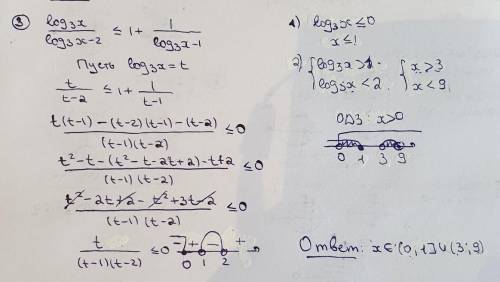 ③ log₃x / (log₃x-2) ≤ 1 + 1 / (log₃x-1)
Пусть log₃x = t
t / (t-2) ≤ 1 + 1 / (t-1)
(t(t-1) - (t-2)(t-1) - (t-2)) / ((t-1)(t-2)) ≤ 0
(t² - t - (t² - t - 2t + 2) - t + 2) / ((t-1)(t-2)) ≤ 0
(t² - 2t + 2 - t² + 3t - 2) / ((t-1)(t-2)) ≤ 0
t / ((t-1)(t-2)) ≤ 0
- + - +
0 1 2
1) log₃x ≤ 0
x ≤ 1
2) { log₃x > 1 { x > 3
log₃x < 2 . x < 9 .
ОДЗ: x>0
0 1 3 9
Ответ: x ∈ (0, 1] ∪ (3; 9)